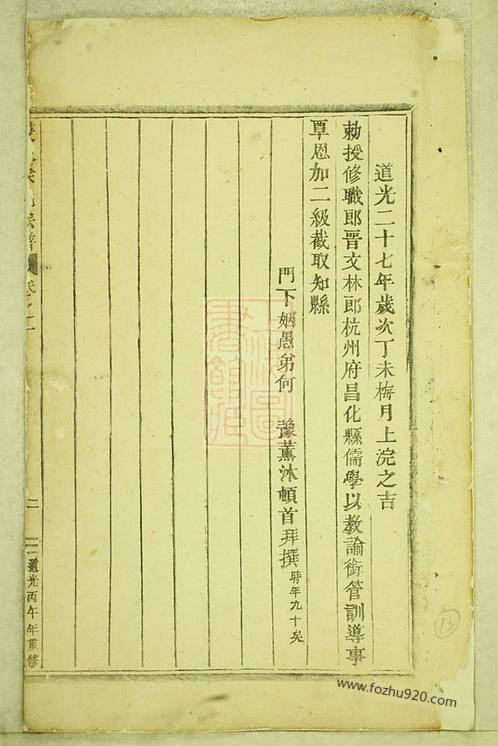 道光二十七年歲次丁未梅月上浣之吉
勅授修職郎晋文林郎杭州府昌化縣儒學以教諭銜管訓導事
覃恩加二級截取知縣
門下姻愚弟何 豫薰沐頓首拜撰時年九十矣
卷之一
二
道光丙午年重修
13
www.fozhu920.com